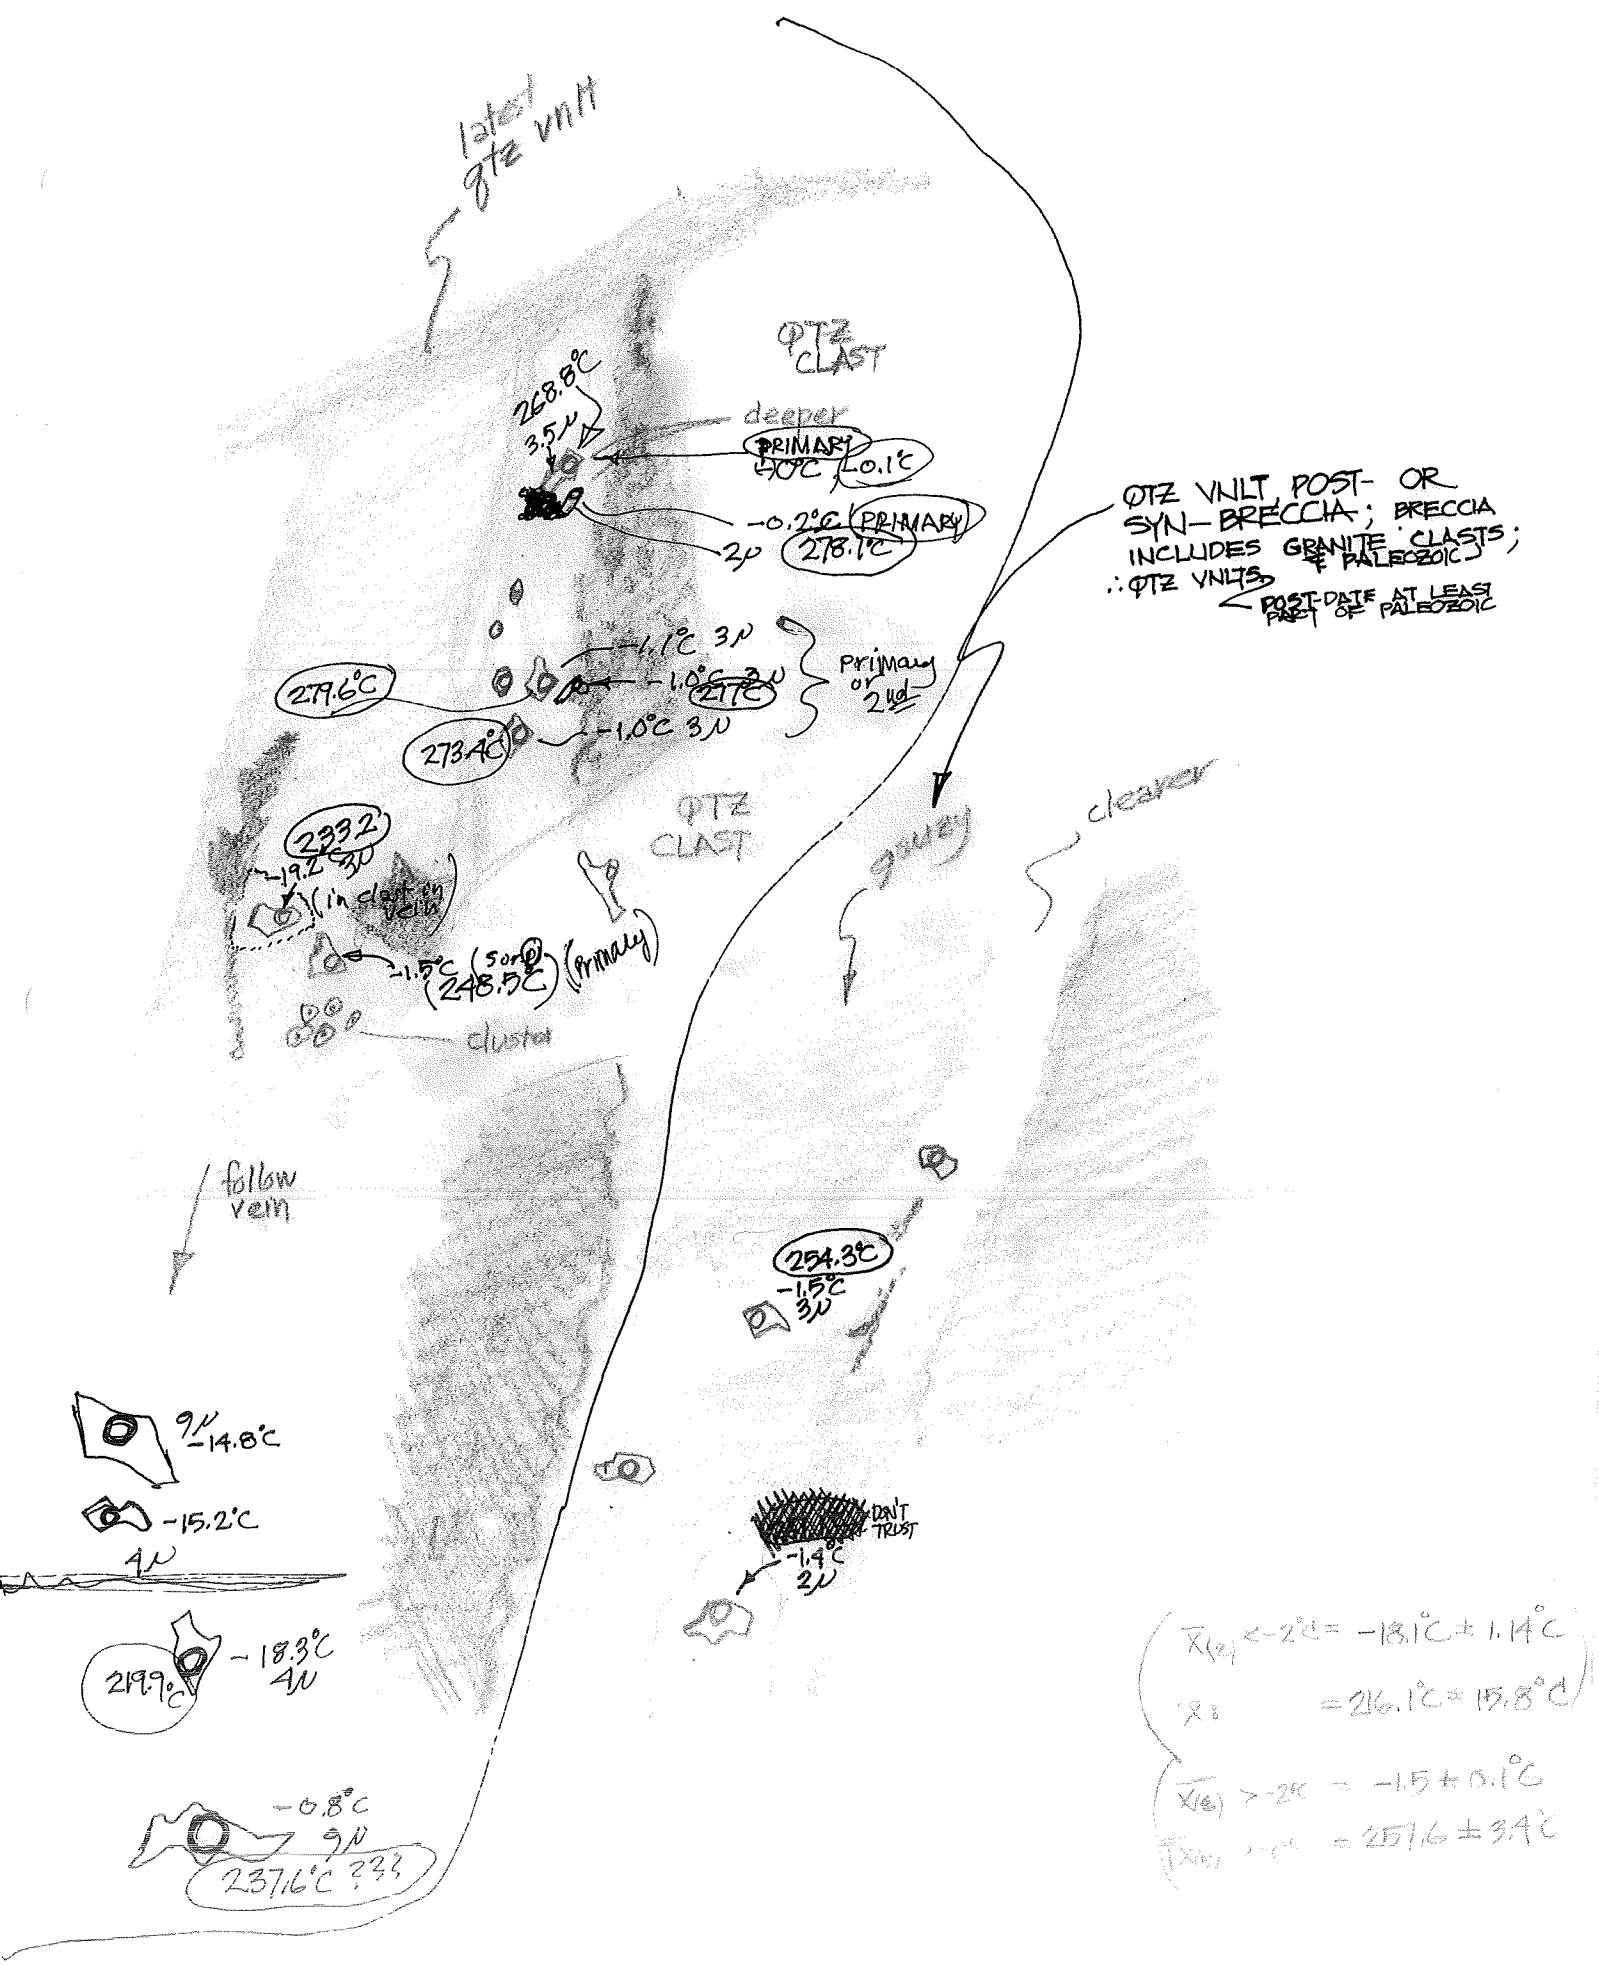 latest
qtz vnlt
QTZ
CLAST
268.8°C
3.5μ
deeper
PRIMARY
-0.1°C
-0.2°C (PRIMARY)
2μ 278.1°C
QTZ VNLT POST- OR
SYN-BRECCIA; BRECCIA
INCLUDES GRANITE CLASTS;
& PALEOZOIC
∴ QTZ VNLTS
POST-DATE AT LEAST
PART OF PALEOZOIC
-1.1°C 3μ
-1.0°C 3μ
277°C
279.6°C
primary
or
2nd
-1.0°C 3μ
273.4°C
cleaner
QTZ
CLAST
gauzy
233.2
-19.2°C 3μ
(in clast in
vein)
-1.5°C (S or P)
(248.5°C) (Primary)
cluster
follow
vein
254.3°C
-1.5°C
3μ
9μ
-14.8°C
-15.2°C
4μ
DON'T
TRUST
-1.4°C
2μ
-18.3°C
4μ
219.9°C
-0.8°C
9μ
237.6°C ???
X(2) <-2°C = -18.1°C ± 1.14°C
= 216.1°C ± 15.8°C
> -2°C = -1.5 ± 0.1°C
= 257.6 ± 3.4°C